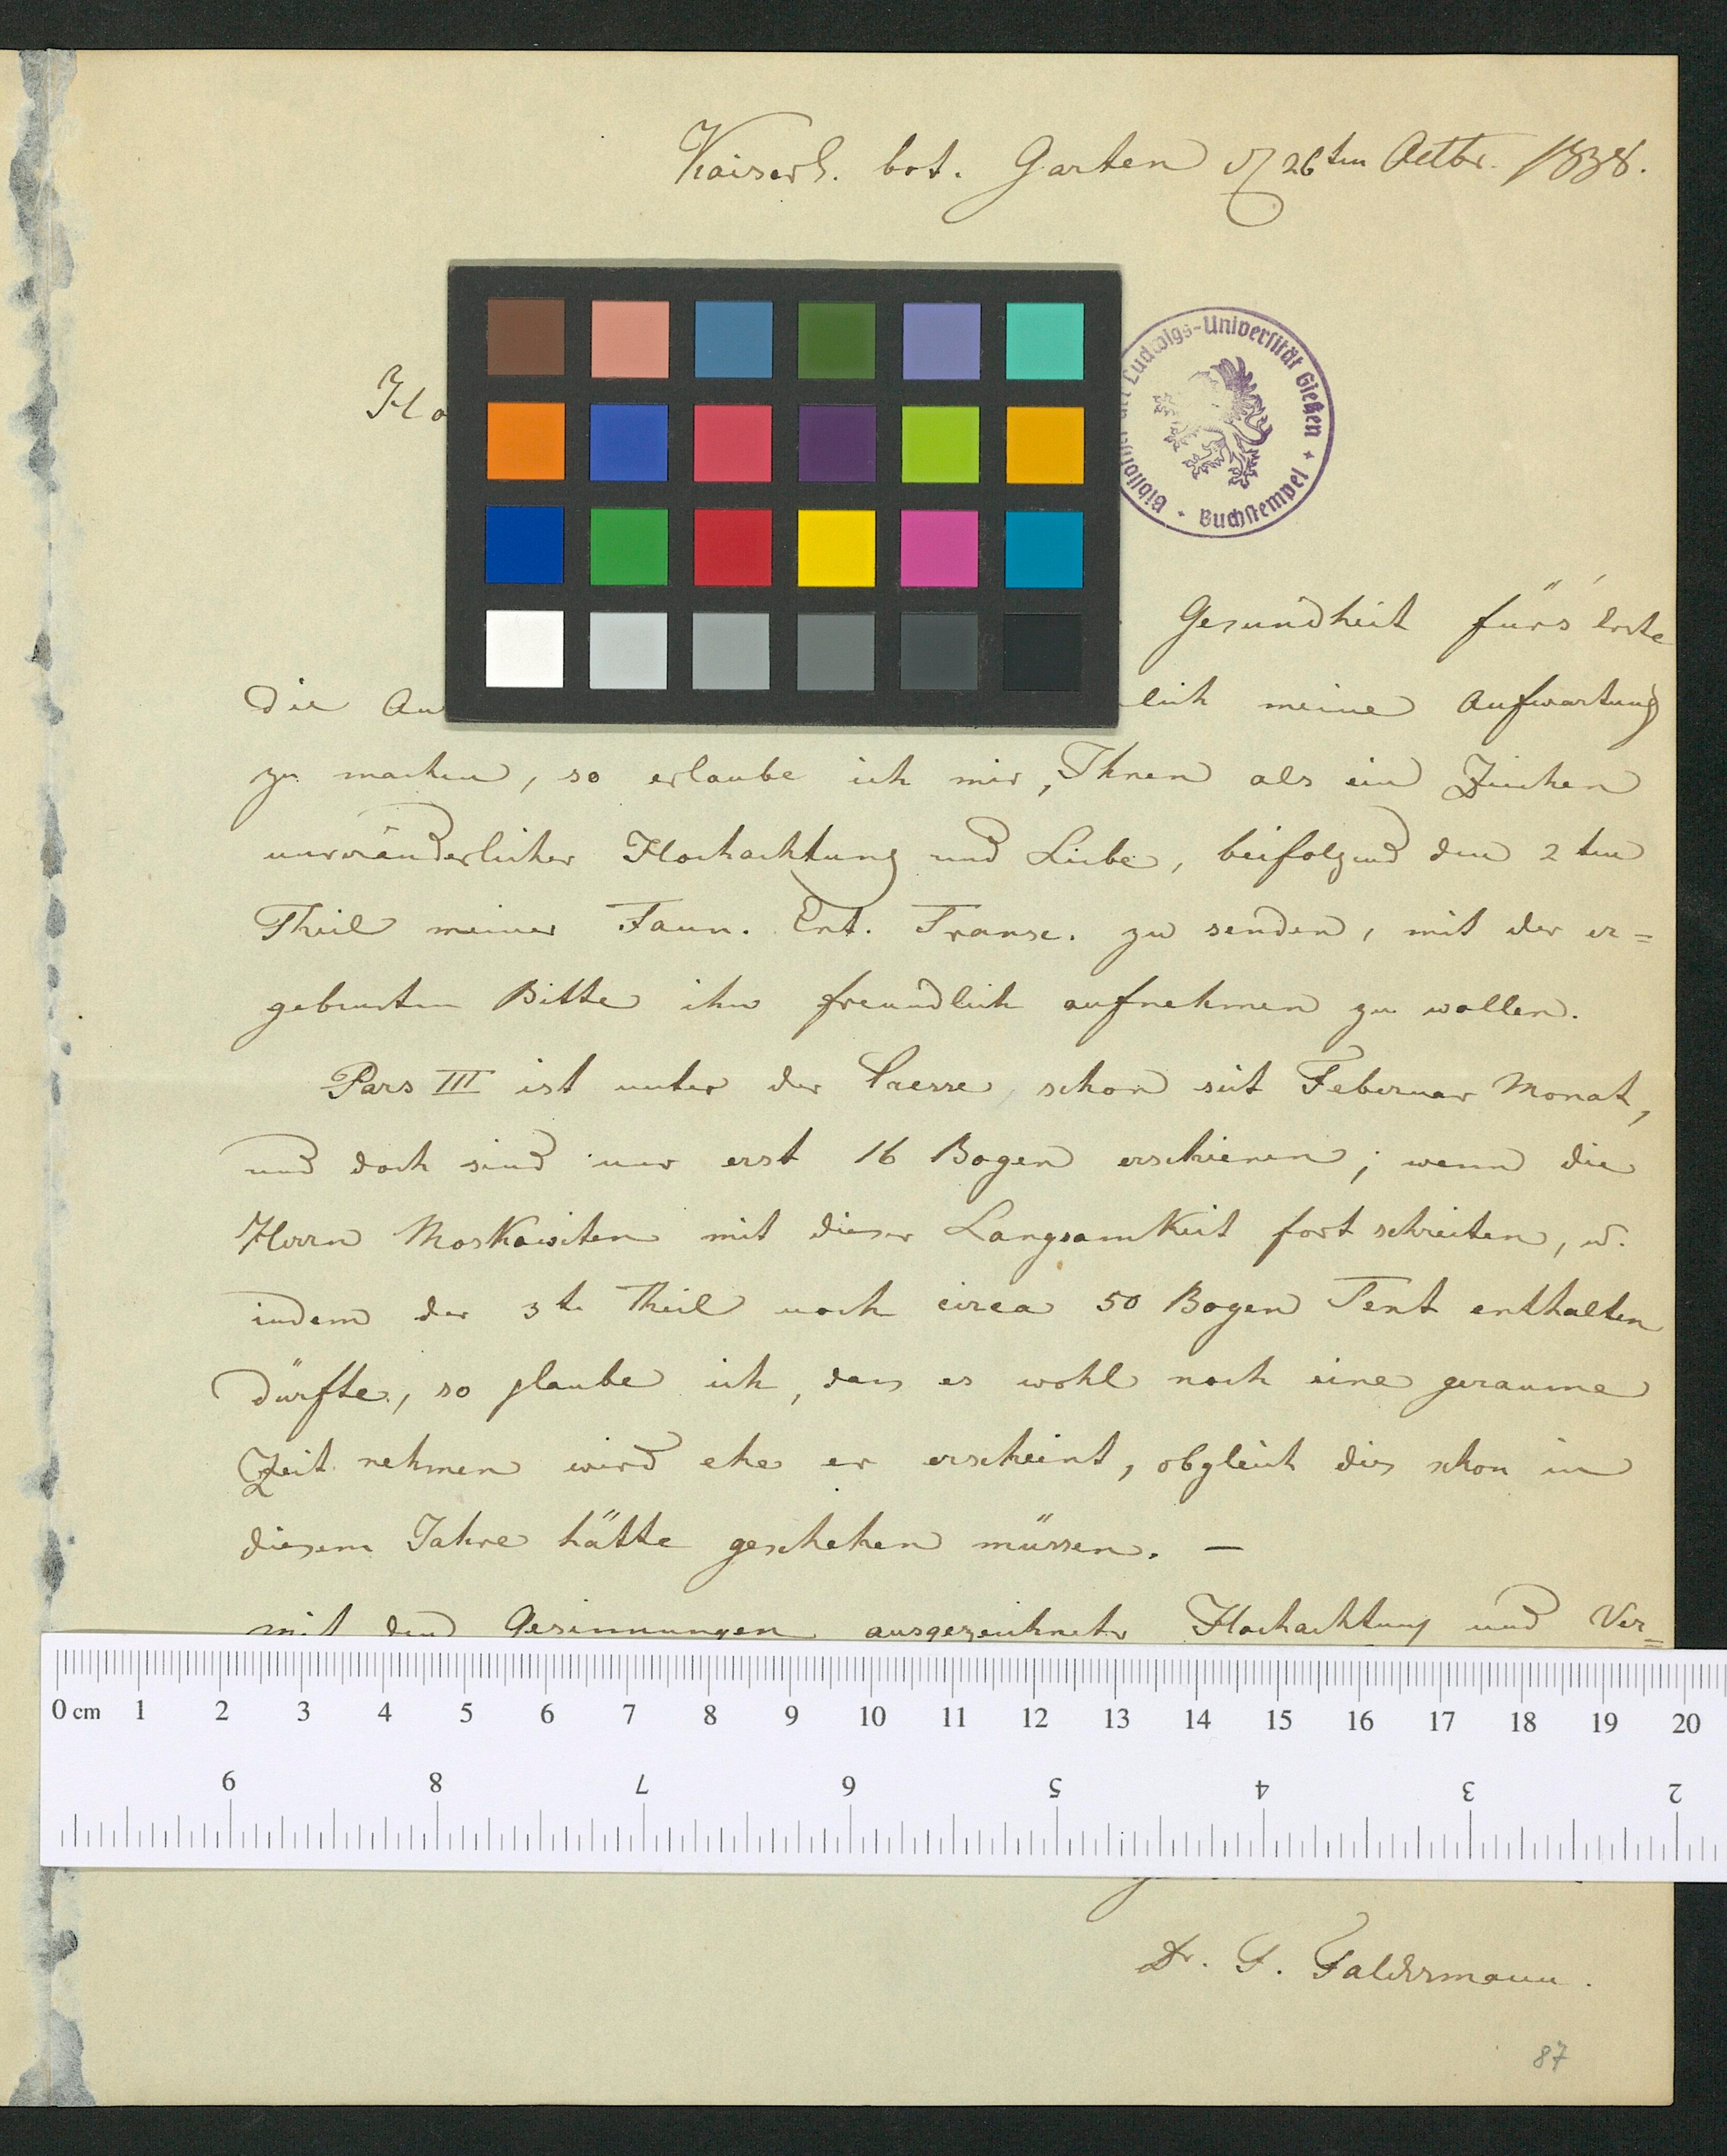 Kaiserl. bot. Garten d 26ten Octbr. 1838.
Ludwigs-Universität Gießen + Buchstempel +
Gesundheit fürs Erste
die
lich meine Aufwartung
zu machen, so erlaube ich mir, Ihnen als ein Zeichen
unveränderlicher Hochachtung und Liebe, beifolgend den 2ten
Theil meiner Faun. Ent. Transc. zu senden, mit der er=
gebensten Bitte ihn freundlich aufnehmen zu wollen.
Pars III ist unter der Presse, schon seit Februar Monat,
und doch sind nur erst 16 Bogen erschienen; wenn die
Herrn Moskowiten mit dieser Langsamkeit fort schreiten, u.
indem der 3te Theil noch circa 50 Bogen Text enthalten
dürfte, so glaube ich, dass es wohl noch eine geraume
Zeit nehmen wird ehe er erscheint, obgleich dies schon in
diesem Jahre hätte geschehen müssen. —
mit den Gesinnungen ausgezeichneter Hochachtung und Ver=
0 cm 1 2 3 4 5 6 7 8 9 10 11 12 13 14 15 16 17 18 19 20
9 8 7 6 5 4 3 2
Dr. F. Faldermann.
87